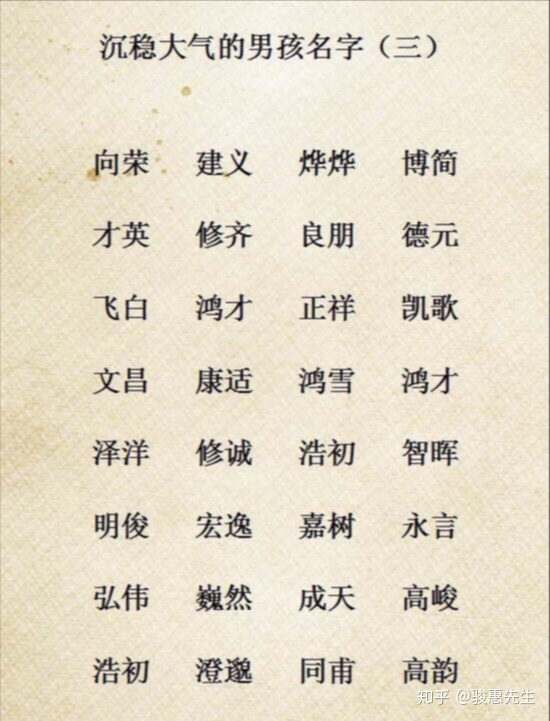 沉稳大气的男孩名字（三）
向荣 建义 烨烨 博简
才英 修齐 良朋 德元
飞白 鸿才 正祥 凯歌
文昌 康适 鸿雪 鸿才
泽洋 修诚 浩初 智晖
明俊 宏逸 嘉树 永言
弘伟 巍然 成天 高峻
浩初 澄邈 同甫 高韵
知乎 @骏惠先生